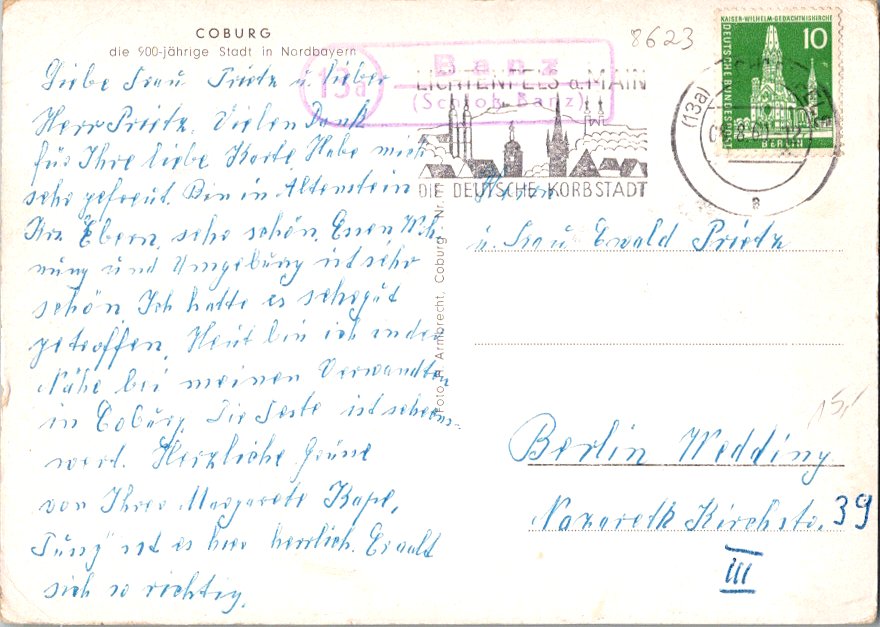 COBURG
die 900-jährige Stadt in Nordbayern
Liebe Frau Prietz u. lieber
Herr Prietz. Vielen Dank
für Ihre liebe Karte Habe mich
sehr gefreut. Bin in Altenstein
Krs. Ebern, sehr schön. Einen
und Umgebung ist sehr
schön Ich hatte es sehr gut
getroffen. Heut bin ich in der
Nähe bei meinen Verwandten
in Coburg. Die Feste ist sehens-
wert. Herzliche Grüße
von Ihrer Margarete
ist es hier herrlich.
sich so richtig.
Foto H. Armbrecht, Coburg Nr.
13a
Banz
(Schloß Banz)
LICHTENFELS a. MAIN
DIE DEUTSCHE KORBSTADT
8623
(13a)
a
KAISER-WILHELM-GEDÄCHTNISKIRCHE
10
DEUTSCHE BUNDESPOST
BERLIN
Herrn
u. Frau Ewald Prietz
Berlin Wedding
Nazareth Kirchstr. 39
III